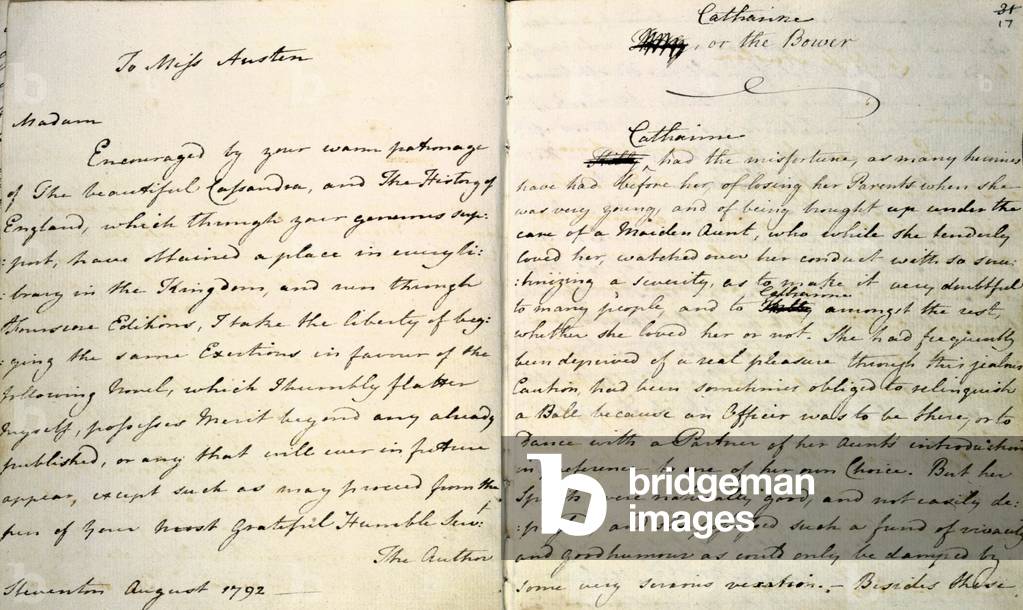 To Miss Austen
Madam
Encouraged by your warm patronage
of The beautiful Cassandra, and The History of
England, which through your generous sup:
:port, have obtained a place in every li:
:brary in the Kingdom, and run through
threescore Editions, I take the liberty of beg:
:ging the same Exertions in favour of the
following Novel, which I humbly flatter
myself, possesses Merit beyond any already
published, or any that will ever in future
appear, except such as may proceed from the
pen of Your most Grateful Humble Servt.
The Author
Steventon August 1792
31
17
Catharine
, or the Bower
Catharine
Kitty, had the misfortune, as many heroines
have had before her, of losing her Parents when she
was very young, and of being brought up under the
care of a Maiden Aunt, who while she tenderly
loved her, watched over her conduct with so scru:
:tinizing a severity, as to make it very doubtful
Catharine
to many people, and to Kitty amongst the rest,
whether she loved her or not. She had frequently
been deprived of a real pleasure through this jealous
Caution, had been sometimes obliged to relinquish
a Ball because an Officer was to be there, or to
Dance with a Partner of her Aunts introduction
in preference to one of her own Choice. But her
Spirits were naturally good, and not easily de:
such a fund of vivacity
and good humour as could only be damped by
some very serious vexation. - Besides these
b
bridgeman
images